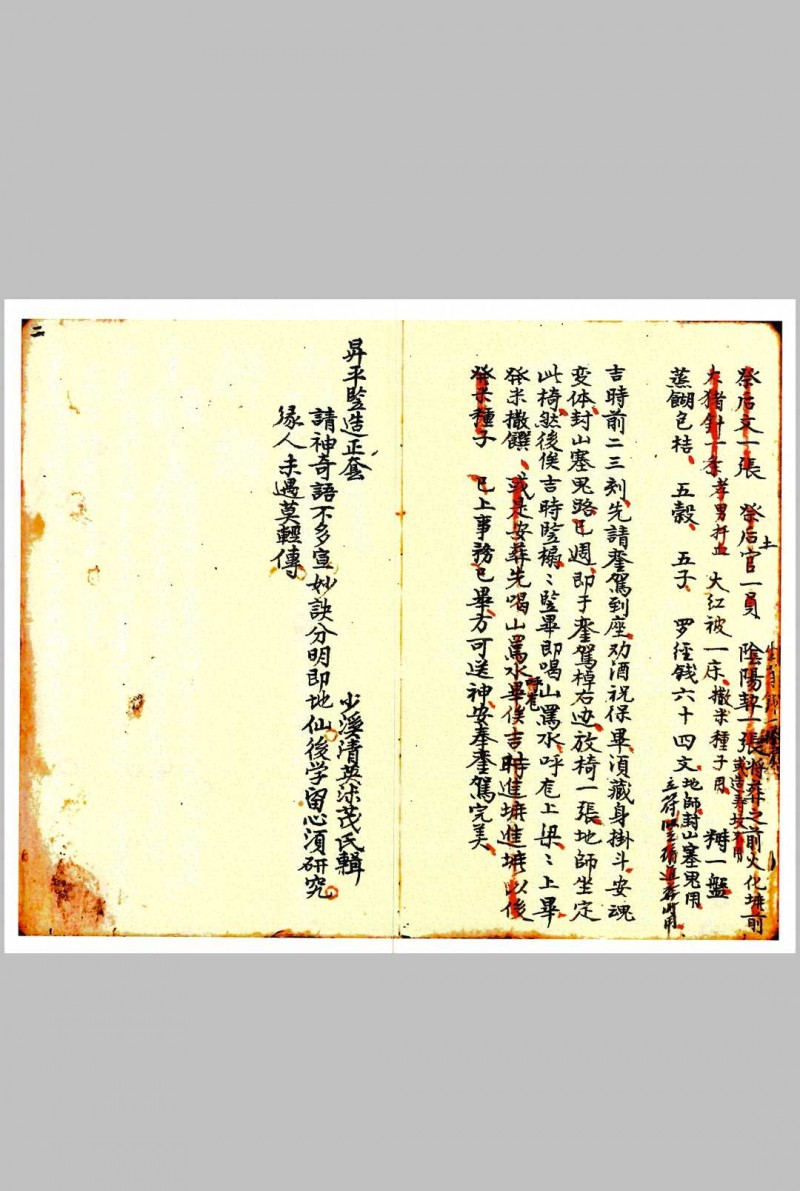 祭后文一張　祭后土官一員　陰陽契一張將葬之前火化壙前
大猪針一　孝男　大红被一床撒米種子用　一盤
蒸餬包桔　五穀　五子　罗徑錢六十四文地師封山塞鬼用
吉時前二三刻先請銮駕到座劝酒祝保畢湏藏身掛斗安魂
变体封山塞鬼路已週即于銮駕棹右边放椅一張地師坐定
此椅然後俟吉時竪榻〻竪畢即喝山罵水呼庖上梁〻上畢
發米撒饌或是安葬先喝山罵水畢俟吉時進壙進壙以後
發米種子　已上事務已畢方可送神安奉銮駕完美
昇平竪造正套　少溪清英沭茂氏輯
請神奇語不多宣妙訣分明即地仙後学留心須研究
缘人未遇莫輕傳
二